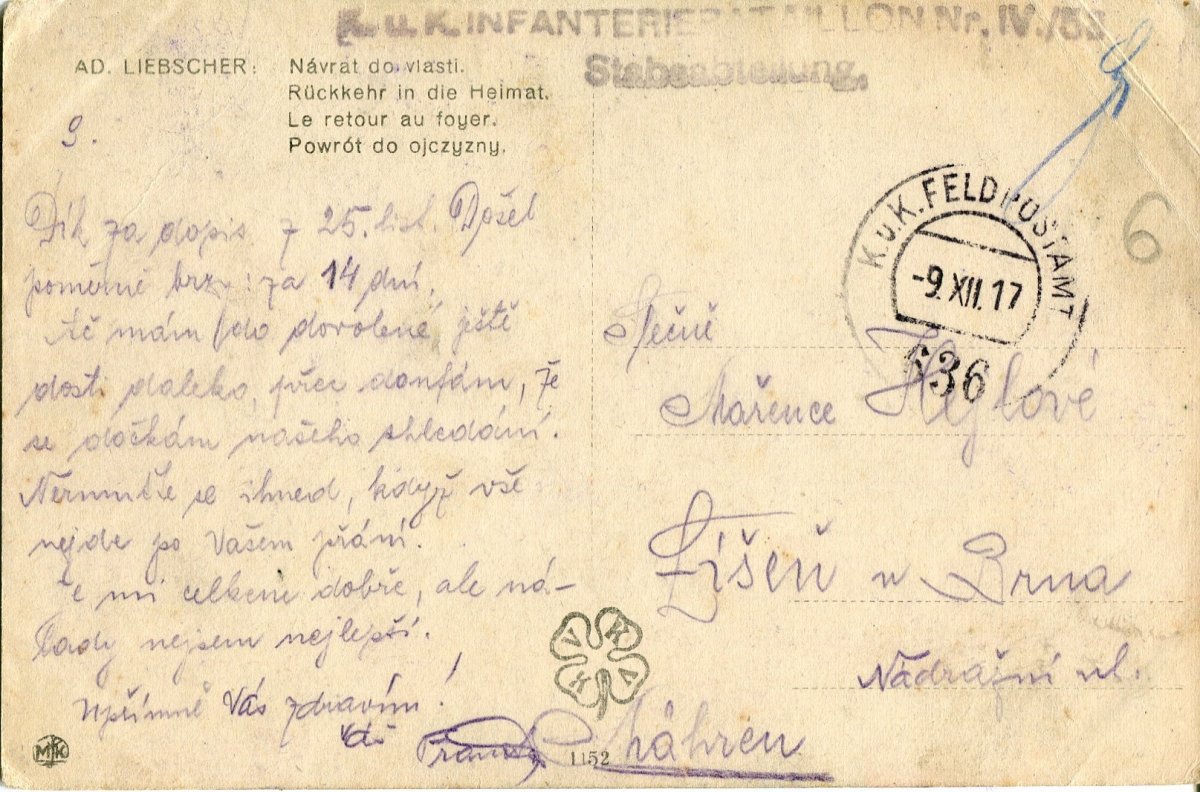 K. u. K. INFANTERIEBATAILLON Nr. IV./
Stabsabteilung.
AD. LIEBSCHER: Návrat do vlasti.
Rückkehr in die Heimat.
Le retour au foyer.
Powrót do ojczyzny.
9.
Dík za dopis z 25. list. Došel
poměrně brzy: za 14 dní.
Ač mám do dovolené ještě
dosti daleko, přec doufám, že
se dočkám našeho shledání.
Nermuťte se ihned, když vše
nejde po Vašem přání.
Je mi celkem dobře, ale ná-
lady nejsem nejlepší.
Upřímně Vás zdraví!
Váš
K. u. K. FELDPOSTAMT
-9. XII. 17
636
6
Slečně
Mařence Hejlové
Líšeň u Brna
Nádražní ul.
Mähren
VKKV
MK
1152